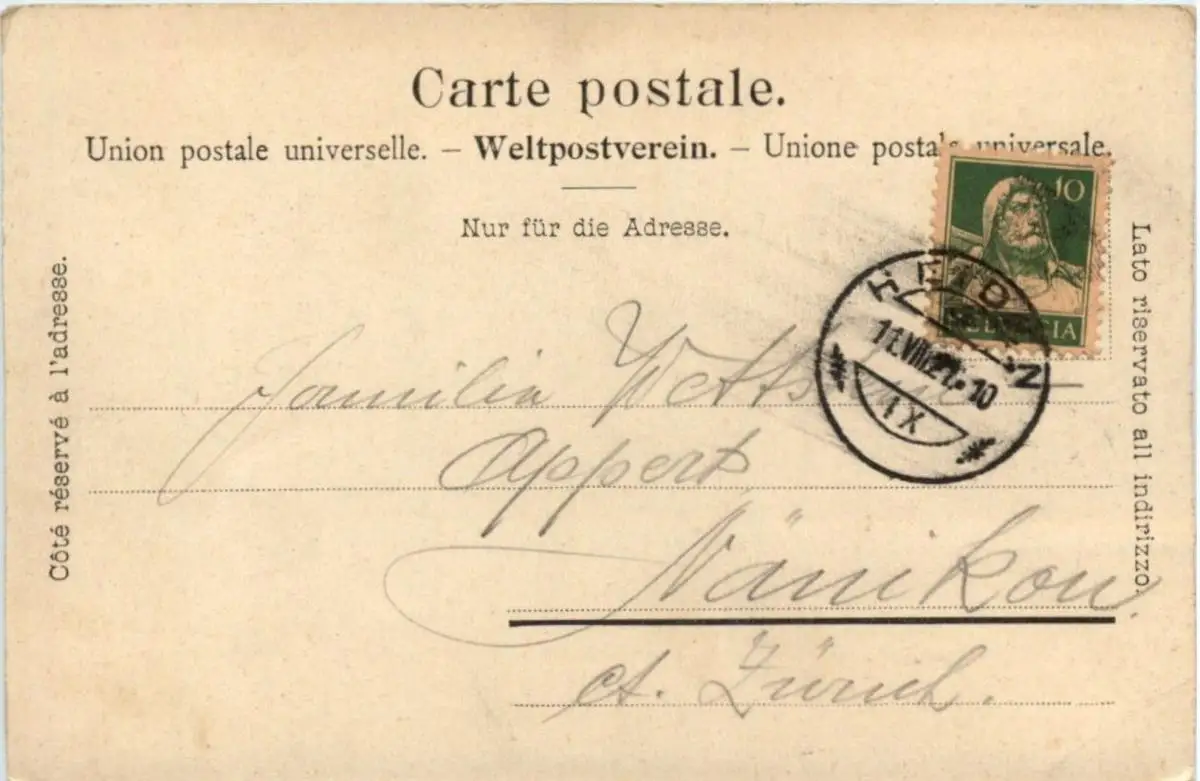 Carte postale.
Union postale universelle. – Weltpostverein. – Unione postale universale.
Nur für die Adresse.
Côté réservé à l'adresse.
Lato riservato all indirizzo.
10
HELVETIA
HEIDEN
10
IX
Familia
Appert
Nänikon.
ct. Zürich.